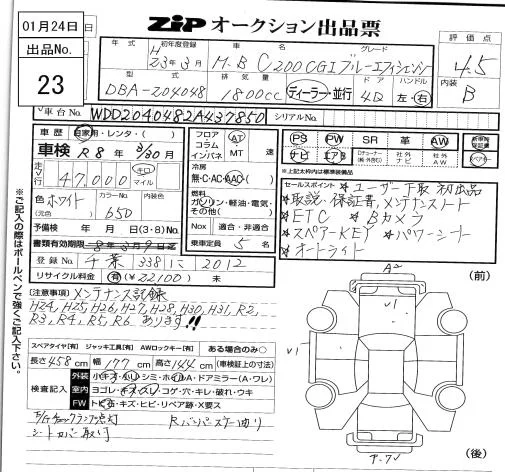 01月24日
ZiP オークション出品票
出品No.
23
年式 初年度登録 車名 グレード 評価点
H 23年3月 M.B C200CGIブルーエフィシェンシー 4.5
型式 排気量 ドア ハンドル 内装
DBA-204048 1800cc ディーラー・並行 4D 左・右 B
車台No. WDD2040482A437850 シリアルNo.
車歴 自家用・レンタ・( )
フロア コラム インパネ AT MT 速
PS PW SR 革 AW
ナビ エアB
車検 R8年3/30月
走行 47,000 キロ マイル
冷房 無・C・AC・AAC
※上記太枠内は標準装備品
色 ホワイト カラーNo. 650
(元色)
燃料 ガソリン・軽油・電気・その他( )
セールスポイント ★ユーザー下取 初出品
★取説・保証書,メンテナンスノート
★ETC ★Bカメラ
★スペアーKEY ★パワーシート
★オートライト
予備検 年 月 日(3・8)No.
Nox 適合・非適合
書類有効期限 8年3月9日迄
乗車定員 5 名
登録No. 千葉 338 に 2012
リサイクル料金 有(¥22100) 未
(前)
[注意事項] メンテナンス記録
H24, H25, H26, H27, H28, H30, H31, R2,
R3, R4, R5, R6 あります!!
A2
V1
V1
スペアタイヤ[有] ジャッキ工具[有] AWロックキー[有] ある場合のみ○
長さ458cm 幅177cm 高さ144cm (車検証の寸法)
検査記入 外装 小キズ・小ハミ・シミ・ホイルA・ドアミラー(A・ワレ)
室内 ヨゴレ・キズ・スレ・コゲ・穴・キレ・破れ・ウキ
FW トビ石・キズ・ヒビ・リペア跡・X要ス
E/Gチェックランプ点灯 Rバンパースケ有り
シートカバー取付
(後)
※ご記入の際はボールペンで強くご記入下さい。